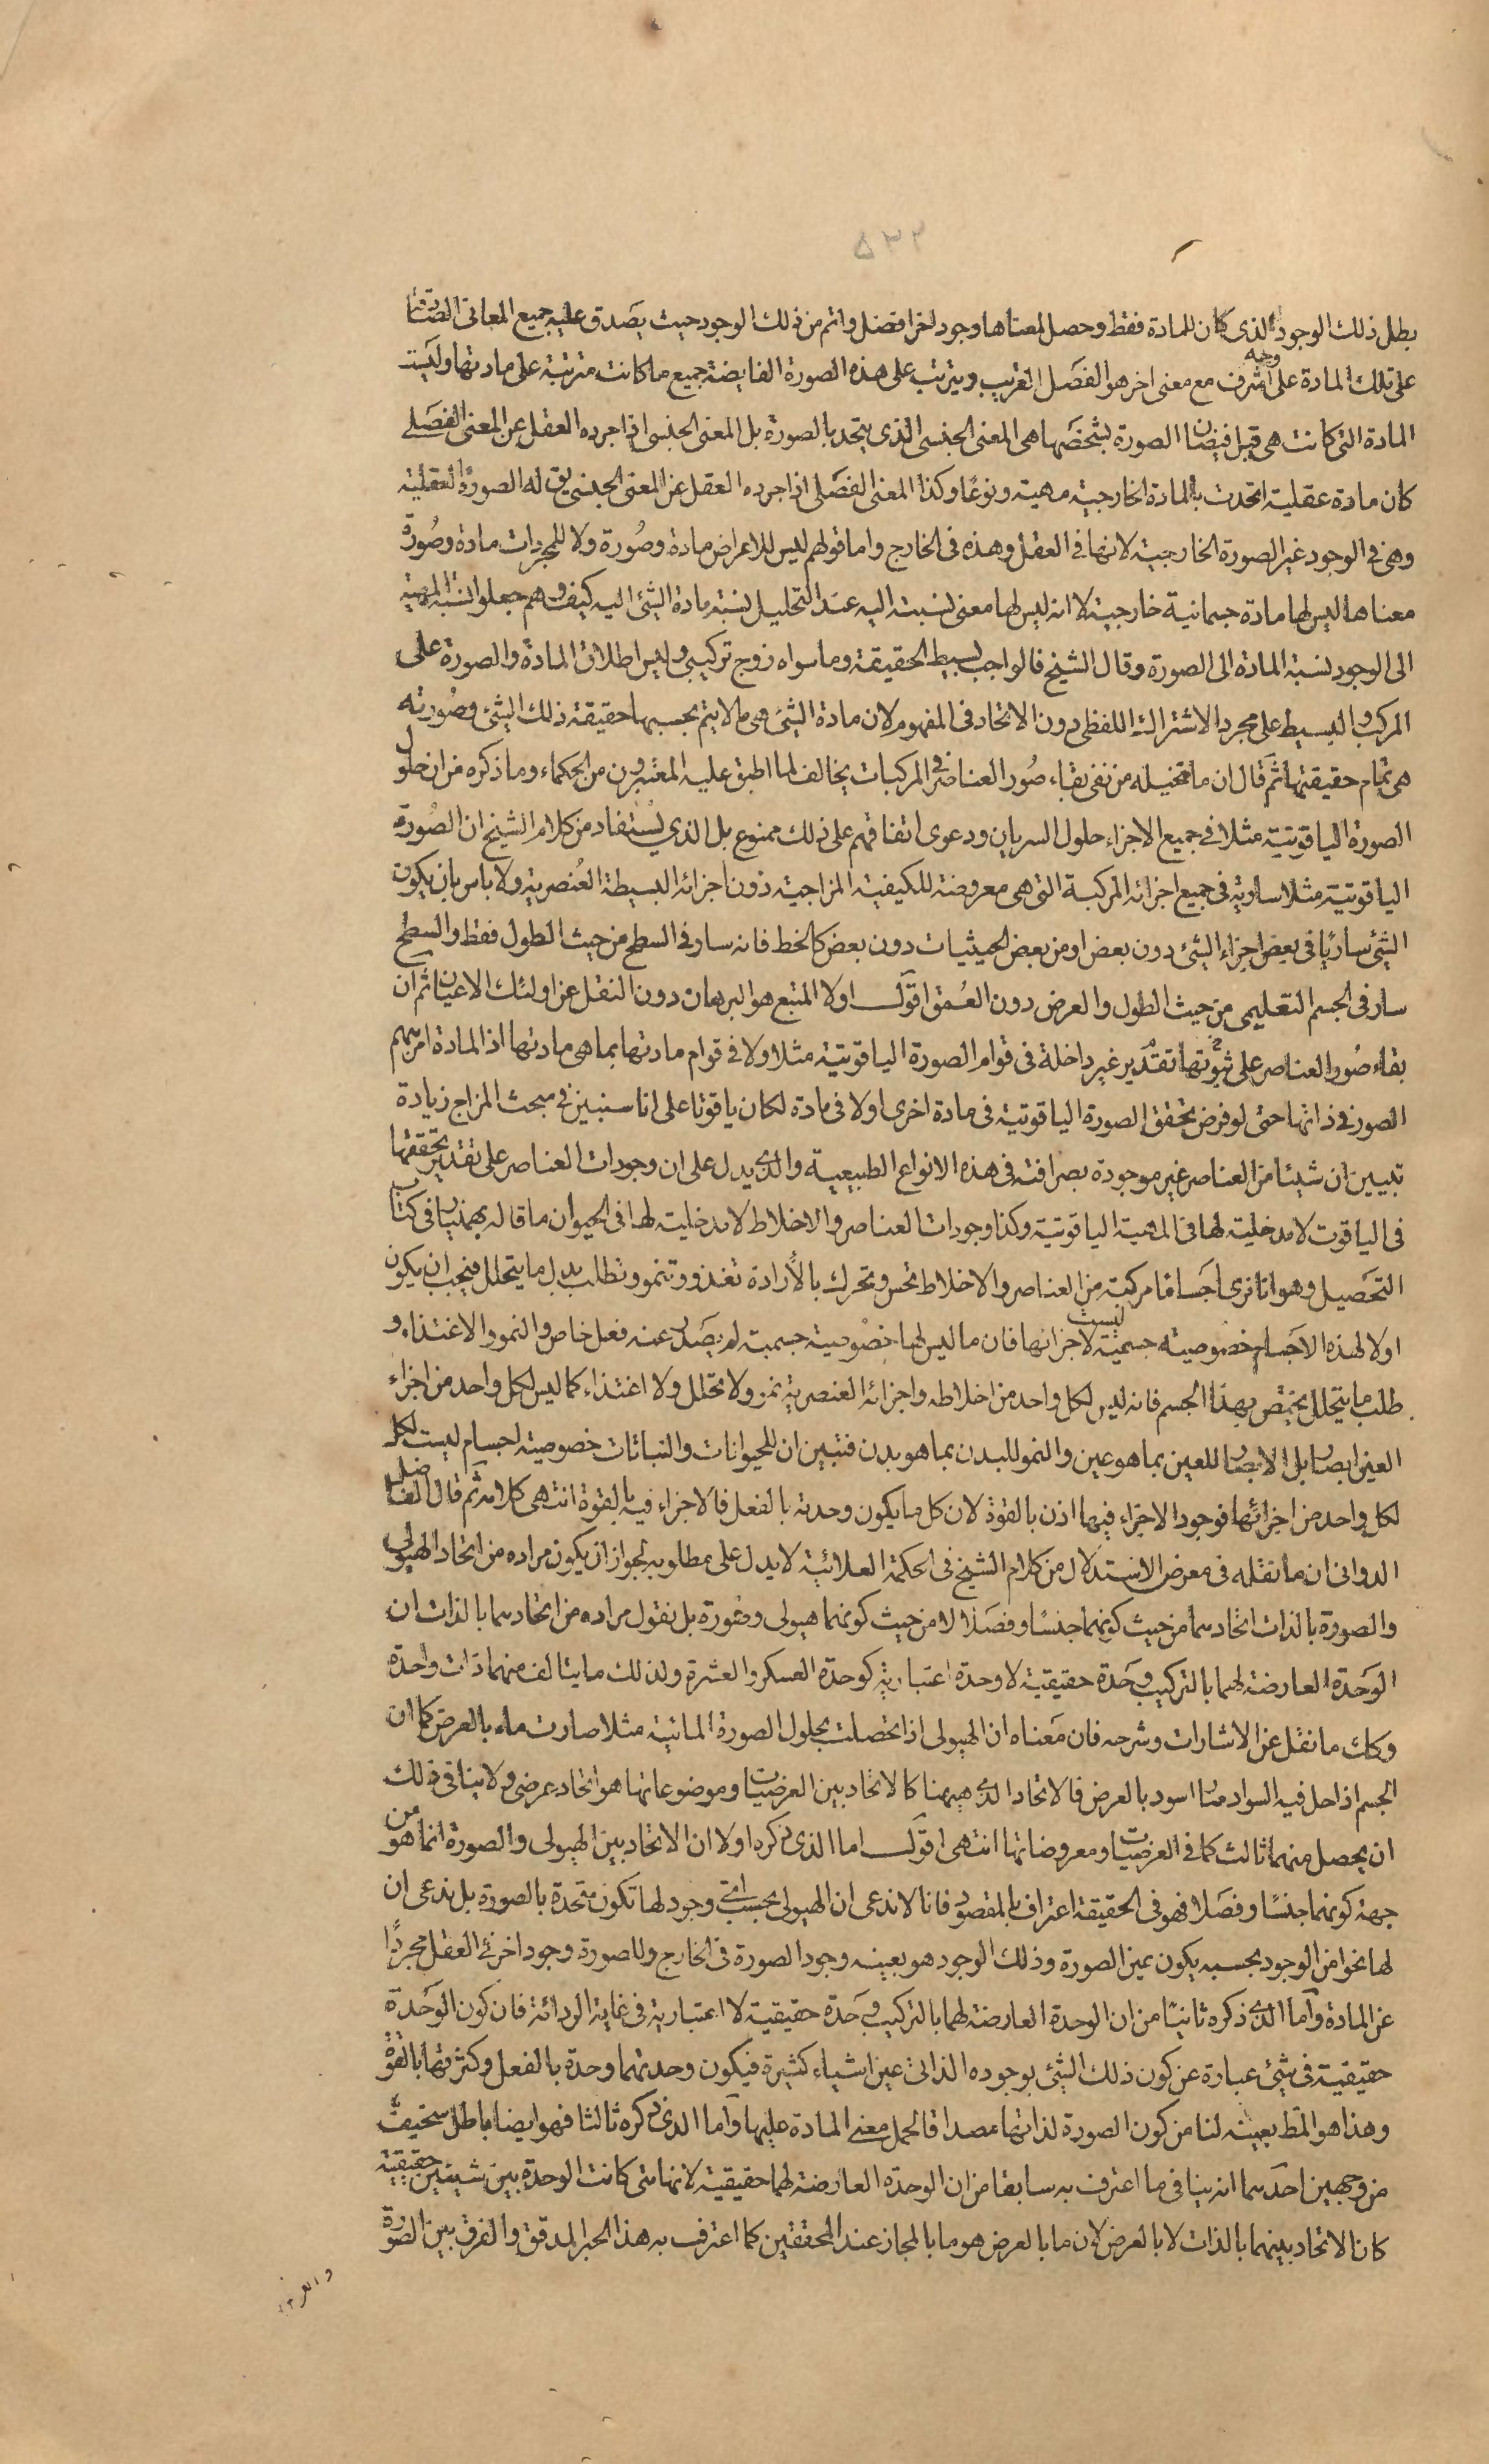 ۵۳۲
بطل ذلك الوجود الذى كان للمادة فقط وحصل لمعناها وجود اخر افضل واتم من ذلك الوجود حيث يصدق عليه جميع المعانى الصادقة
على تلك المادة على وجه اشرف مع معنى اخر هو الفصل القريب ويترتب على هذه الصورة الفايضة جميع ما كانت مترتبة على مادتها وليست
المادة التى كانت هى قبل فيضان الصورة بشخصها هى المعنى الجنسى الذى يتحد بالصورة بل المعنى الجنسى اذا جرده العقل عن المعنى الفصلى
كان مادة عقلية اتحدت بالمادة الخارجية مهية ونوعًا وكذا المعنى الفصلى اذا جرده العقل عن المعنى الجنسى يق له الصورة العقلية
وهى فى الوجود غير الصورة الخارجية لانها فى العقل وهذه فى الخارج واما قولهم ليس للاعراض مادة وصورة ولا للمجردات مادة وصُورة
معناها ليس لها مادة جسمانية خارجية لا انه ليس لها معنى نسبته اليه عند التحليل نسبة مادة الشئ اليه كيف وهم جعلوا نسبة المهية
الى الوجود نسبة المادة الى الصورة وقال الشيخ فالواجب بسيط الحقيقة وما سواه زوج تركيبى وليس اطلاق المادة والصورة على
المركب والبسيط على مجرد الاشتراك اللفظى دون الاتحاد فى المفهوم لان مادة الشئ هى ما لا يتم بحسبها حقيقة ذلك الشئ وصُورته
هى تمام حقيقتها ثم قال ان ما تخيله من نفى بقاء صُور العناصر فى المركبات يخالف لما اطبق عليه المعتبرون من الحكماء وما ذكره من ان حلول
الصورة الياقوتية مثلا فى جميع الاجزاء حلول السريان ودعوى اتفاقهم على ذلك ممنوع بل الذي يُستفاد من كلام الشيخ ان الصُورة
الياقوتية مثلا سارية فى جميع اجزائه المركبة التى هى معروضة للكيفية المزاجية دون اجزائه البسيطة العُنصرية ولا باس بان يكون
الشئ ساريًا فى بعض اجزاء الشئ دون بعض او من بعض الحيثيات دون بعض كالخط فانه سار فى السطح من حيث الطول فقط والسطح
سار فى الجسم التعليمى من حيث الطول والعرض دون العُمق اقول اولا المتبع هو البرهان دون النقل عن اولئك الاعيان ثم ان
بقاء صُور العناصر على ثبوتها تقدير غير داخلة فى قوام الصورة الياقوتية مثلا ولا فى قوام مادتها بما هى مادتها اذ المادة امر مبهم
الصور فى ذاتها حتى لو فرض تحقق الصورة الياقوتية فى مادة اخرى اولا فى مادة لكان ياقوتا على انا سنبين فى مبحث المزاج زيادة
تبيين ان شيئا من العناصر غير موجودة بصرافته فى هذه الانواع الطبيعية والذى يدل على ان وجودات العناصر على تقدير تحققها
فى الياقوت لا مدخلية لها فى المهية الياقوتية وكذا وجودات العناصر والاخلاط لا مدخلية لها فى الحيوان ما قاله بهمنيار فى كتاب
التحصيل وهو انا نرى اجسامًا مركبة من العناصر والاخلاط تحس وتحرك بالأرادة تغذو وتنمو وتطلب بدل ما يتحلل فيجب ان يكون
اولا لهذه الاجسام خصوصية جسمية ليست لاجزائها فان ما ليس لها خصُوصية جسمية لم يصدر عنه فعل خاص والنمو والاغتذاء و
طلب ما يتحلل يختص بهذا الجسم فانه ليس لكل واحد من اخلاطه واجزائه العنصرية نمو ولا تحلل ولا اغتذاء كما ليس لكل واحد من اجزاء
العين ابصار بل الابصار للعين بما هو عين والنمو للبدن بما هو بدن فتبين ان للحيوانات والنباتات خصوصية اجسام ليست لكل
لكل واحد من اجزائها فوجود الاجزاء فيها اذن بالقوة لان كل ما يكون وحدته بالفعل فالاجزاء فيه بالقوة انتهى كلامه ثم قال الفاضل
الدوانى ان ما نقله فى معرض الاستدلال من كلام الشيخ فى الحكمة العلائية لا يدل على مطلوبه لجواز ان يكون مراده من اتحاد الهيولى
والصورة بالذات اتحادهما من حيث كونهما جنسًا وفصلا لا من حيث كونهما هيولى وصُورة بل نقول مراده من اتحادهما بالذات ان
الوَحدة العارضة لهما بالتركيب وحَدة حقيقية لا وحدة اعتبارية كوحدة العسكر والعشرة ولذلك ما يتالف منهما ذات واحدة
وكك ما نقل عن الاشارات وشرحه فان مَعناه ان الهيولى اذا تحصلت بحلول الصورة المائية مثلا صارت ماء بالعرض كما ان
الجسم اذا حل فيه السواد صار اسود بالعرض فالاتحاد الذى ههنا كالاتحاد بين العرضيات وموضوعاتها هو اتحاد عرضى ولا ينافى ذلك
ان يحصل منهما ثالث كما فى العرضيات ومعروضاتها انتهى اقول اما الذى ذكره اولا ان الاتحاد بين الهيولى والصورة انما هو من
جهة كونهما جنسًا وفصَلا فهو فى الحقيقة اعتراف بالمقصود فانا لا ندعى ان الهيولى بحسب اى وجود لها تكون متحدة بالصورة بل ندعى ان
لها نحوا من الوجود بحسبه يكون عين الصورة وذلك الوجود هو بعينه وجود الصورة فى الخارج وللصورة وجود اخر فى العقل مجردًا
عن المادة وأما الذى ذكره ثانيًا من ان الوحدة العارضة لهما بالتركيب وحَدة حقيقية لا اعتبارية فى غاية الردائة فان كون الوَحَدة
حقيقية فى شئ عبارة عن كون ذلك الشئ بوجوده الذاتى عين اشياء كثيرة فيكون وحدتهما وحدة بالفعل وكثرتهما بالقوة
وهذا هو المط بعينه لنا من كون الصورة لذاتها مصداقا لحمل معنى المادة عليها وأما الذى ذكره ثالثا فهو ايضا باطل سخيف
من وجهين احدهما انه ينافى ما اعترف به سابقا من ان الوحدة العارضة لهما حقيقية لانها متى كانت الوحدة بين شيئين حقيقية
كان الاتحاد بينهما بالذات لا بالعرض لان ما بالعرض هو ما بالمجاز عند المحققين كما اعترف به هذا الحبر المدقق والفرق بين الصورة